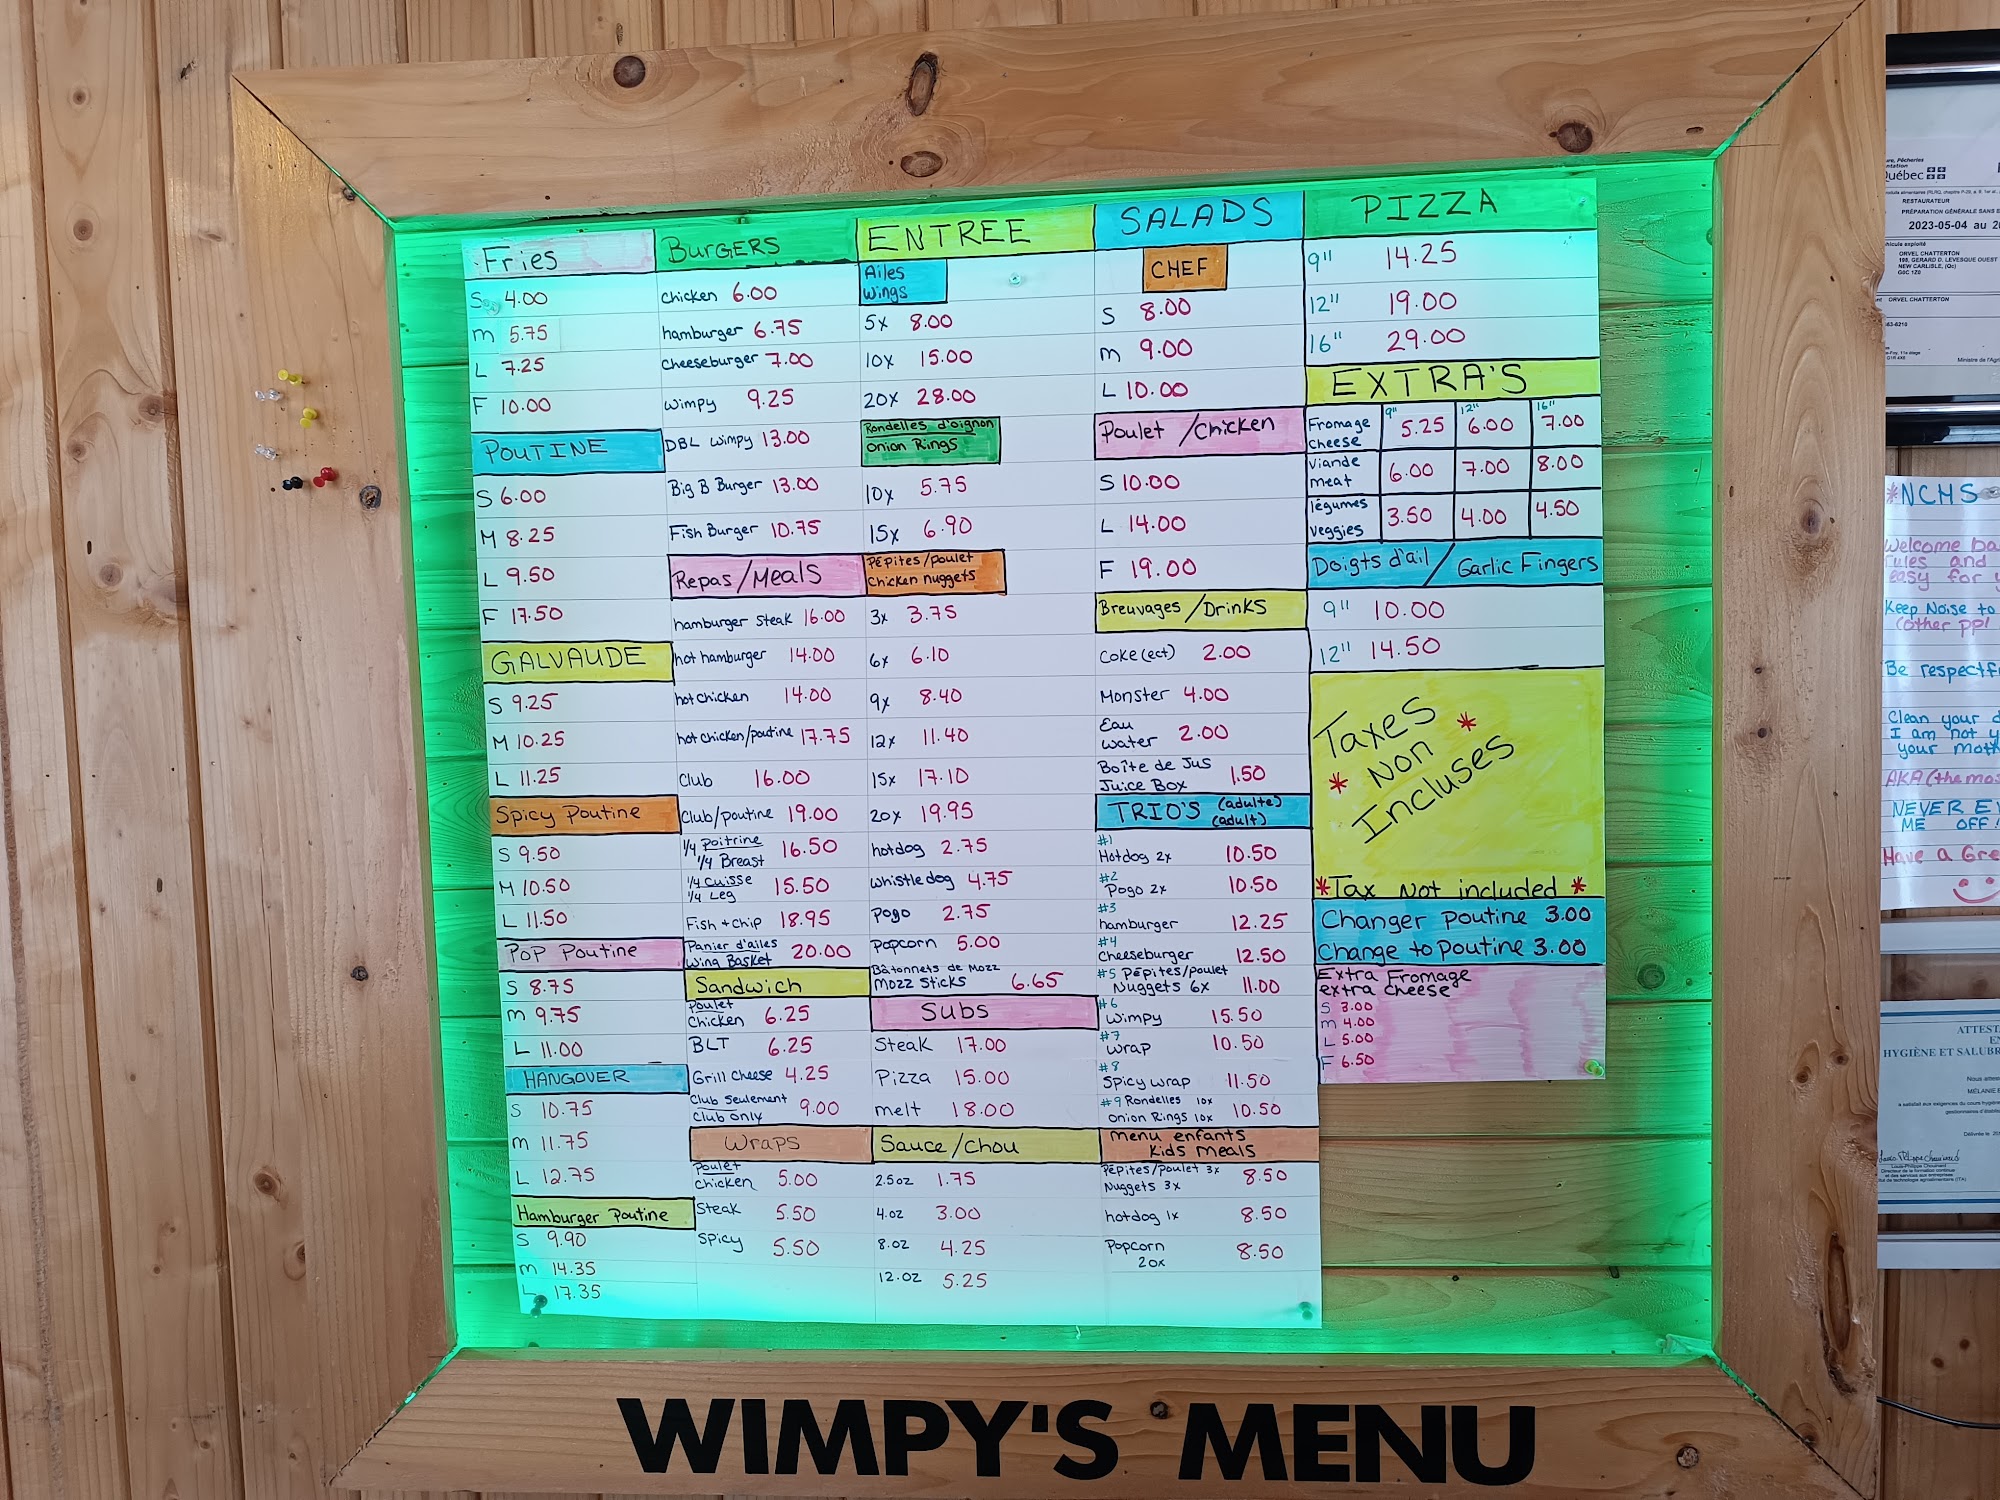 Fries
S 4.00
m 5.75
L 7.25
F 10.00
POUTINE
S 6.00
M 8.25
L 9.50
F 17.50
GALVAUDE
S 9.25
M 10.25
L 11.25
Spicy Poutine
S 9.50
M 10.50
L 11.50
POP Poutine
S 8.75
m 9.75
L 11.00
HANGOVER
S 10.75
m 11.75
L 12.75
Hamburger Poutine
S 9.90
m 14.35
L 17.35
BURGERS
chicken 6.00
hamburger 6.75
cheeseburger 7.00
wimpy 9.25
DBL wimpy 13.00
Big B Burger 13.00
Fish Burger 10.75
Repas/Meals
hamburger steak 16.00
hot hamburger 14.00
hot chicken 14.00
hot chicken/poutine 17.75
Club 16.00
Club/poutine 19.00
1/4 Poitrine
1/4 Breast 16.50
1/4 cuisse
1/4 Leg 15.50
Fish + chip 18.95
Panier d'ailes
Wing Basket 20.00
Sandwich
Poulet
Chicken 6.25
BLT 6.25
Grill cheese 4.25
Club seulement
Club only 9.00
Wraps
Poulet
Chicken 5.00
Steak 5.50
Spicy 5.50
ENTREE
Ailes
Wings
5x 8.00
10x 15.00
20x 28.00
Rondelles d'oignon
Onion Rings
10x 5.75
15x 6.90
Pépites/poulet
Chicken nuggets
3x 3.75
6x 6.10
9x 8.40
12x 11.40
15x 17.10
20x 19.95
hotdog 2.75
whistle dog 4.75
pogo 2.75
Popcorn 5.00
Bâtonnets de Mozz
Mozz Sticks 6.65
Subs
Steak 17.00
Pizza 15.00
melt 18.00
Sauce/Chou
2.5oz 1.75
4.oz 3.00
8.oz 4.25
12.oz 5.25
SALADS
CHEF
S 8.00
m 9.00
L 10.00
Poulet /Chicken
S 10.00
L 14.00
F 19.00
Breuvages/Drinks
Coke (ect) 2.00
Monster 4.00
Eau
water 2.00
Boîte de Jus
Juice Box 1.50
TRIO'S (adulte)
(adult)
#1
Hotdog 2x 10.50
#2
Pogo 2x 10.50
#3
hamburger 12.25
#4
Cheeseburger 12.50
#5 Pépites/poulet
Nuggets 6x 11.00
#6
Wimpy 15.50
#7
Wrap 10.50
#8
Spicy wrap 11.50
#9 Rondelles 10x
Onion Rings 10x 10.50
menu enfants
Kids meals
Pépites/poulet 3x
Nuggets 3x 8.50
hotdog 1x 8.50
Popcorn
20x 8.50
PIZZA
9" 14.25
12" 19.00
16" 29.00
EXTRA'S
9" 12" 16"
Fromage
cheese 5.25 6.00 7.00
Viande
meat 6.00 7.00 8.00
légumes
veggies 3.50 4.00 4.50
Doigts d'ail / Garlic Fingers
9" 10.00
12" 14.50
Taxes *
* Non
Incluses
*Tax Not included *
Changer poutine 3.00
Change to Poutine 3.00
Extra Fromage
extra cheese
S 3.00
m 4.00
L 5.00
F 6.50
WIMPY'S MENU
Québec
RESTAURATEUR
PRÉPARATION GÉNÉRALE SANS
2023-05-04 au
ORVEL CHATTERTON
NEW CARLISLE, (Qc)
G0C 1Z0
ORVEL CHATTERTON
*NCHS
Welcome
rules and
easy for
Keep Noise to
(other ppl
Be respectf
Clean your
I am not
your moth
AKA (the mos
NEVER
ME OFF!
Have a Gre
ATTEST
HYGIÈNE ET SALUB